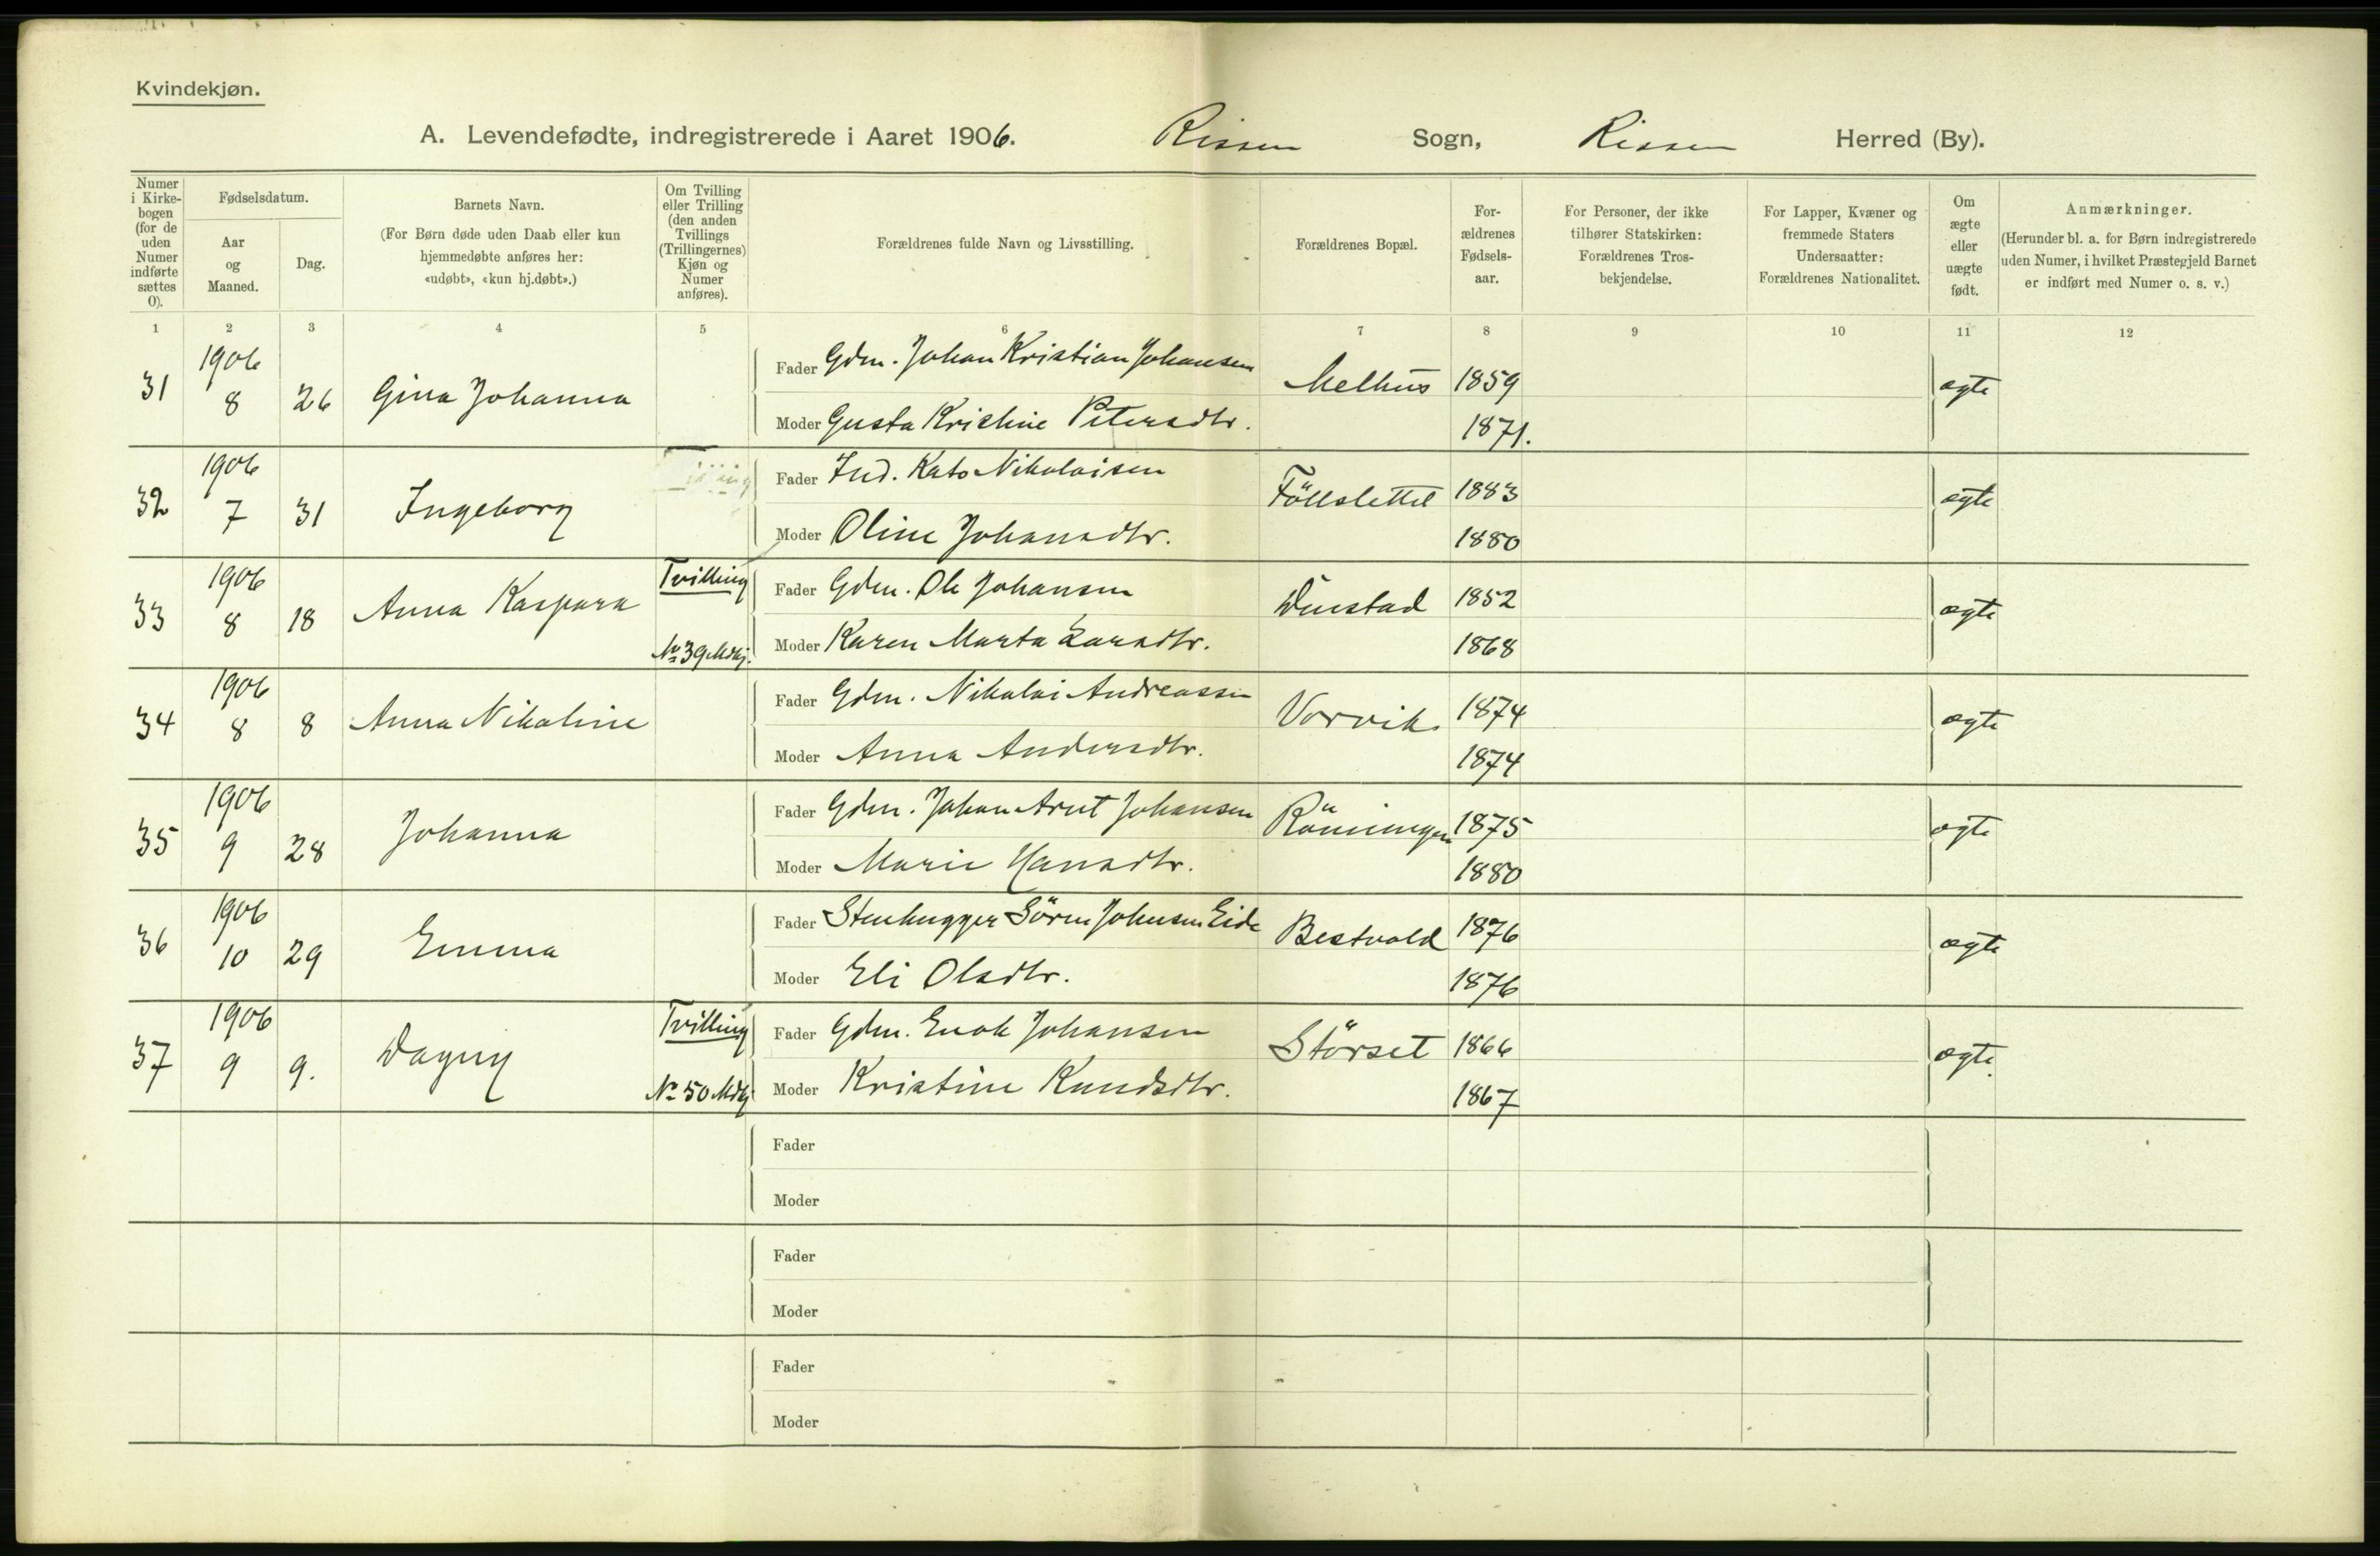 Kvindekjøn.
A. Levendefødte, indregistrerede i Aaret 1906. Rissen Sogn, Rissen Herred (By).
Numer i Kirkebogen (for de uden Numer indførte sættes 0).
Fødselsdatum.
Aar og Maaned.
Dag.
Barnets Navn.
(For Børn døde uden Daab eller kun hjemmedøbte anføres her: «udøbt», «kun hj.døbt».)
Om Tvilling eller Trilling (den anden Tvillings (Trillingernes) Kjøn og Numer anføres).
Forældrenes fulde Navn og Livsstilling.
Forældrenes Bopæl.
Forældrenes Fødselsaar.
For Personer, der ikke tilhører Statskirken: Forældrenes Trosbekjendelse.
For Lapper, Kvæner og fremmede Staters Undersaatter: Forældrenes Nationalitet.
Om ægte eller uægte født.
Anmærkninger.
(Herunder bl. a. for Børn indregistrerede uden Numer, i hvilket Præstegjeld Barnet er indført med Numer o. s. v.)
1 2 3 4 5 6 7 8 9 10 11 12
31 1906 8 26 Gina Johanna Fader Gdm. Johan Kristian Johansen Melhus 1859 ægte
Moder Gusta Kristine Petersdtr. 1871.
32 1906 7 31 Ingeborg Fader Ind. Kato Nikolaisen Föllslettet 1883 ægte
Moder Oline Johansdtr. 1880
33 1906 8 18 Anna Kaspara Tvilling Fader Gdm. Ole Johansen 1852 ægte
No 39 Mdkj. Moder Karen Marta Larsdtr. 1868
34 1906 8 8 Anna Nikoline Fader Gdm. Nikolai Andreassen Vorvik 1874 ægte
Moder Anna Andersdtr. 1874
35 1906 9 28 Johanna Fader Gdm. Johan Arnt Johansen Rönningen 1875 ægte
Moder Marie Hansdtr. 1880
36 1906 10 29 Emma Fader Stenhugger Sören Johnsen Eide Bestvold 1876 ægte
Moder Eli Olsdtr. 1876
37 1906 9 9. Dagny Tvilling Fader Gdm. Enok Johansen Störset 1866 ægte.
No 50 Mdkj Moder Kristine Knudsdtr. 1867
Fader
Moder
Fader
Moder
Fader
Moder